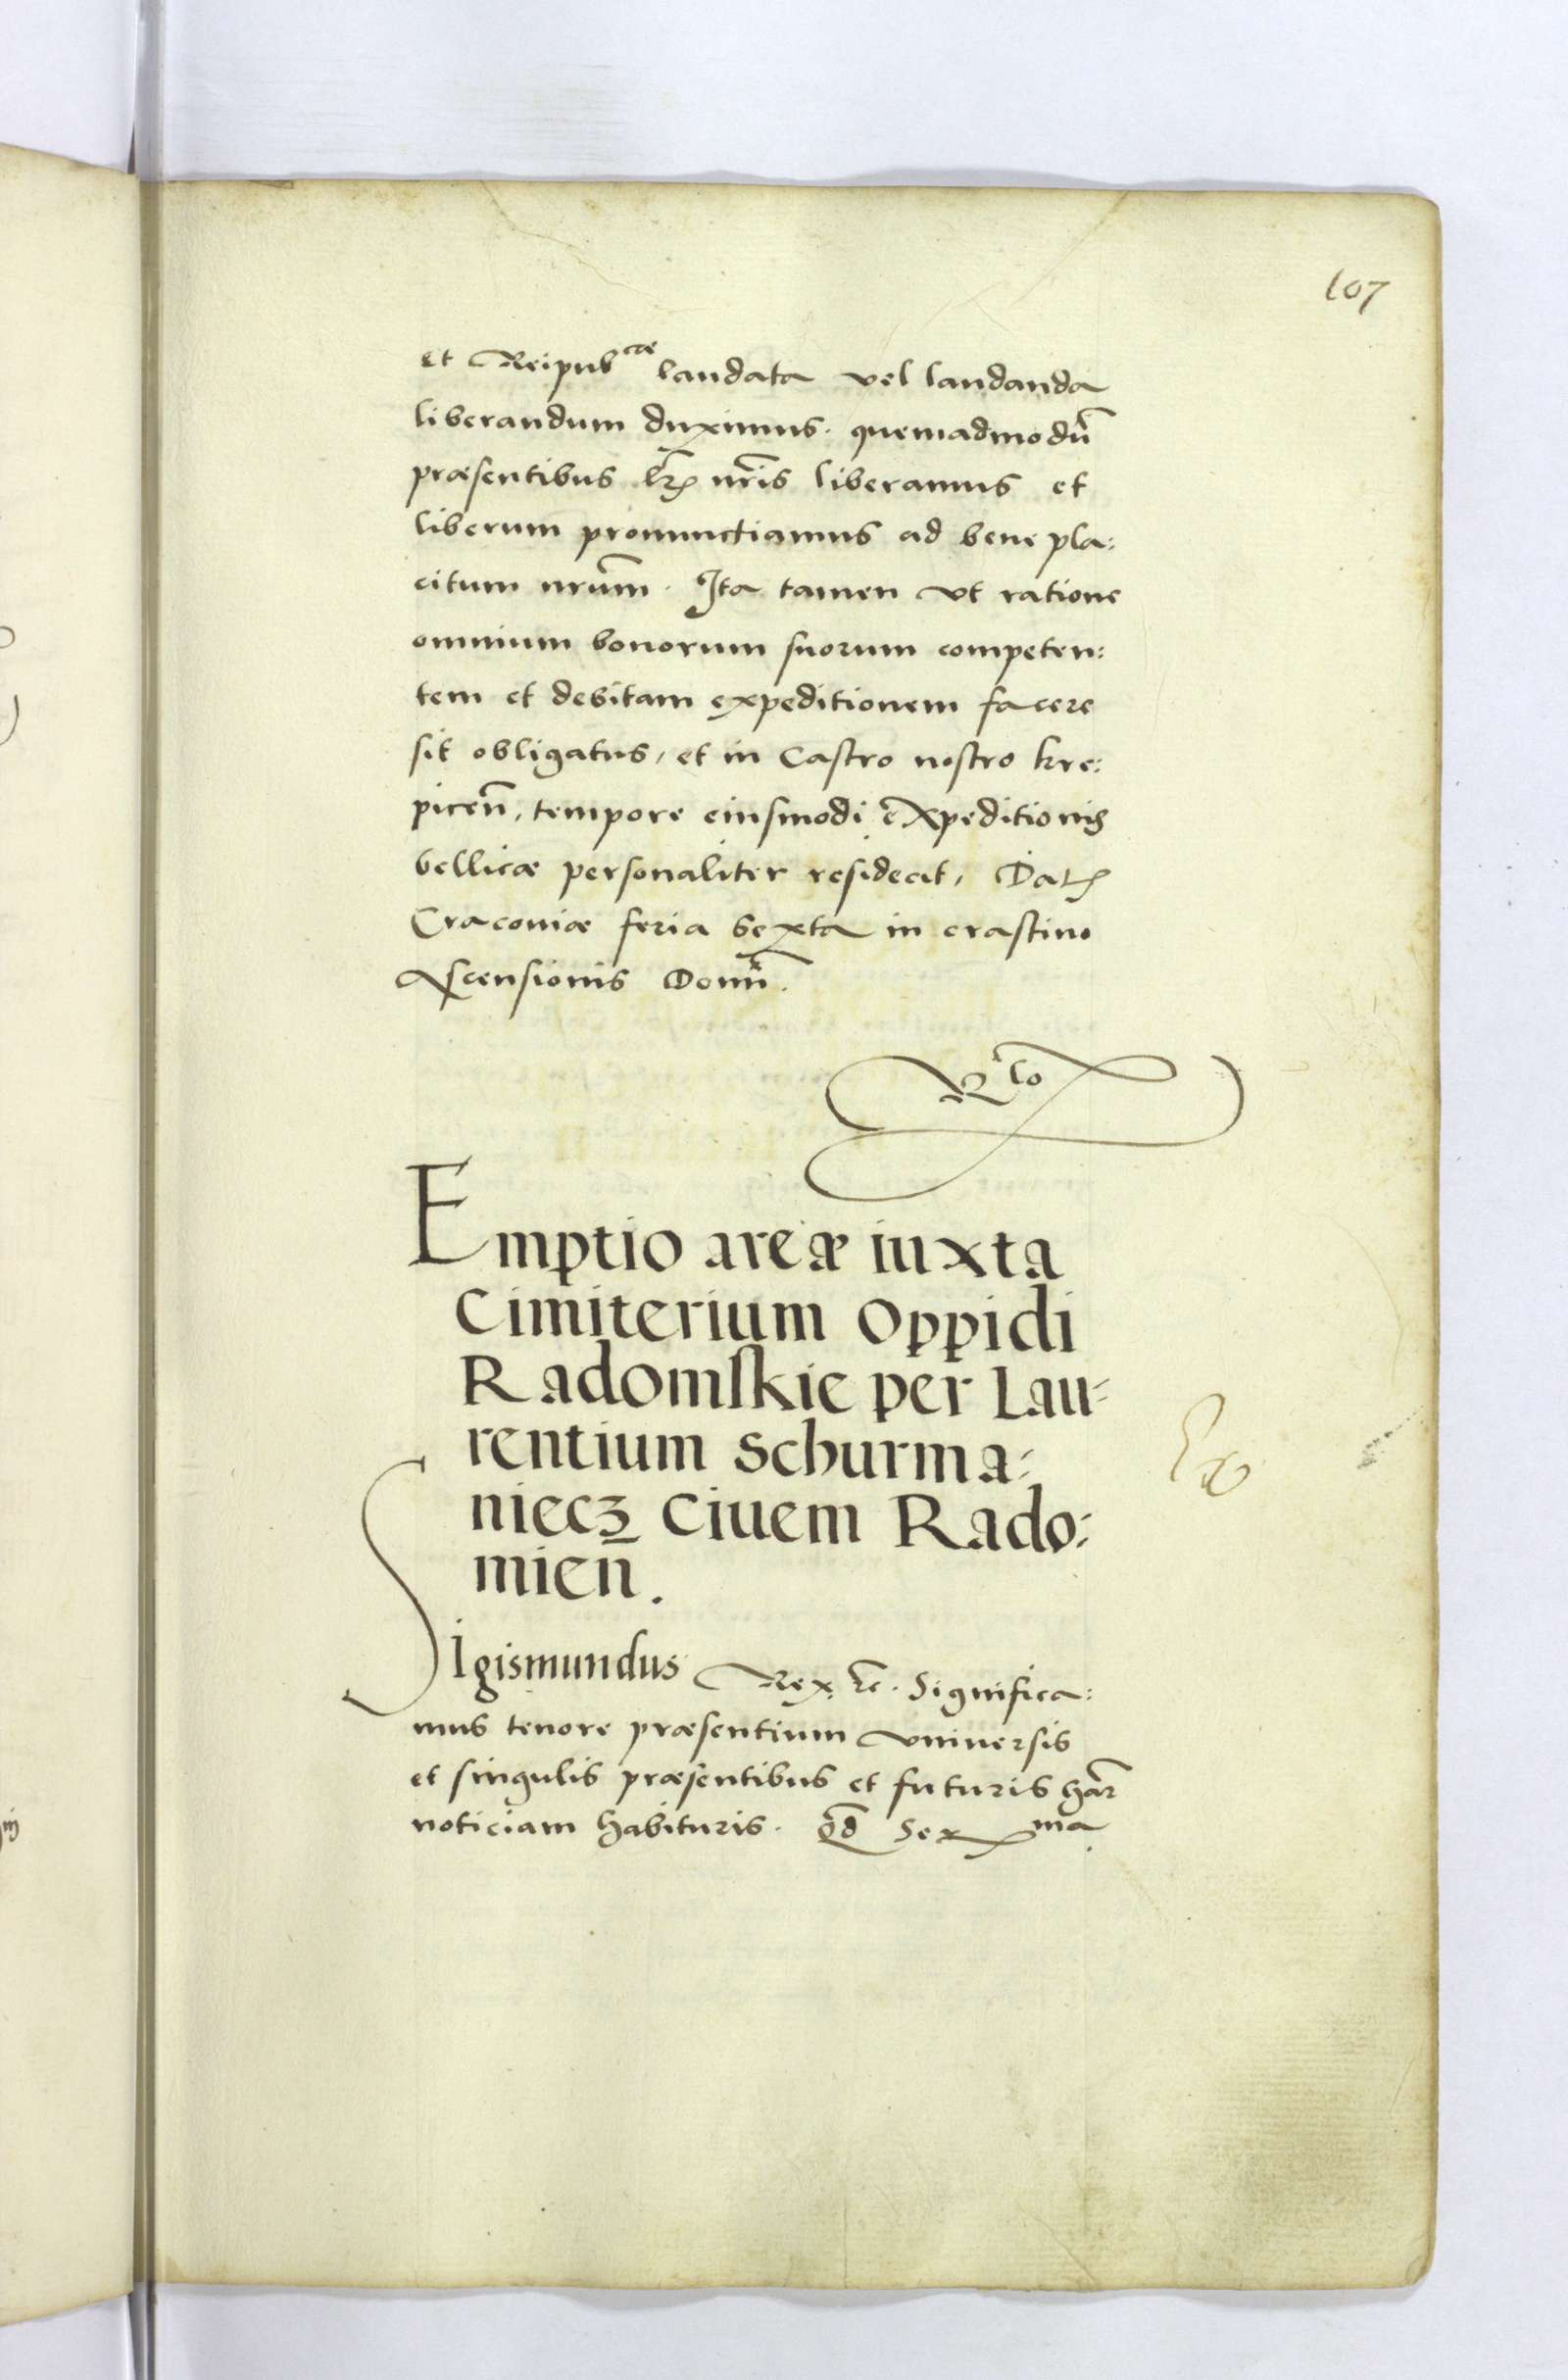 107
et Reipub^cæ laudata vel laudanda
liberandum duximus. quemadmodū
præsentibus lrīs nrīs liberamus et
liberum pronunctiamus ad bene pla:
citum nrūm. Ita tamen vt ratione
omnium bonorum suorum competen:
tem et debitam expeditionem facere
sit obligatus, et in Castro nostro kre:
piceñ, tempore eiusmodi expeditionis
bellicæ personaliter resideat, Datꝭ
Cracoviæ feria sexta in crastino
Ascensionis Domī.
Emptio areæ iuxta
Cimiterium Oppidi
Radomskie per Lau=
rentium Schurma=
niecz Ciuem Rado:
mieñ.
Sigismundus Rex ēc. Significa:
mus tenore præsentium vniuersis
et singulis præsentibus et futuris har̄
noticiam habituris. Qd̄ Ser^ma